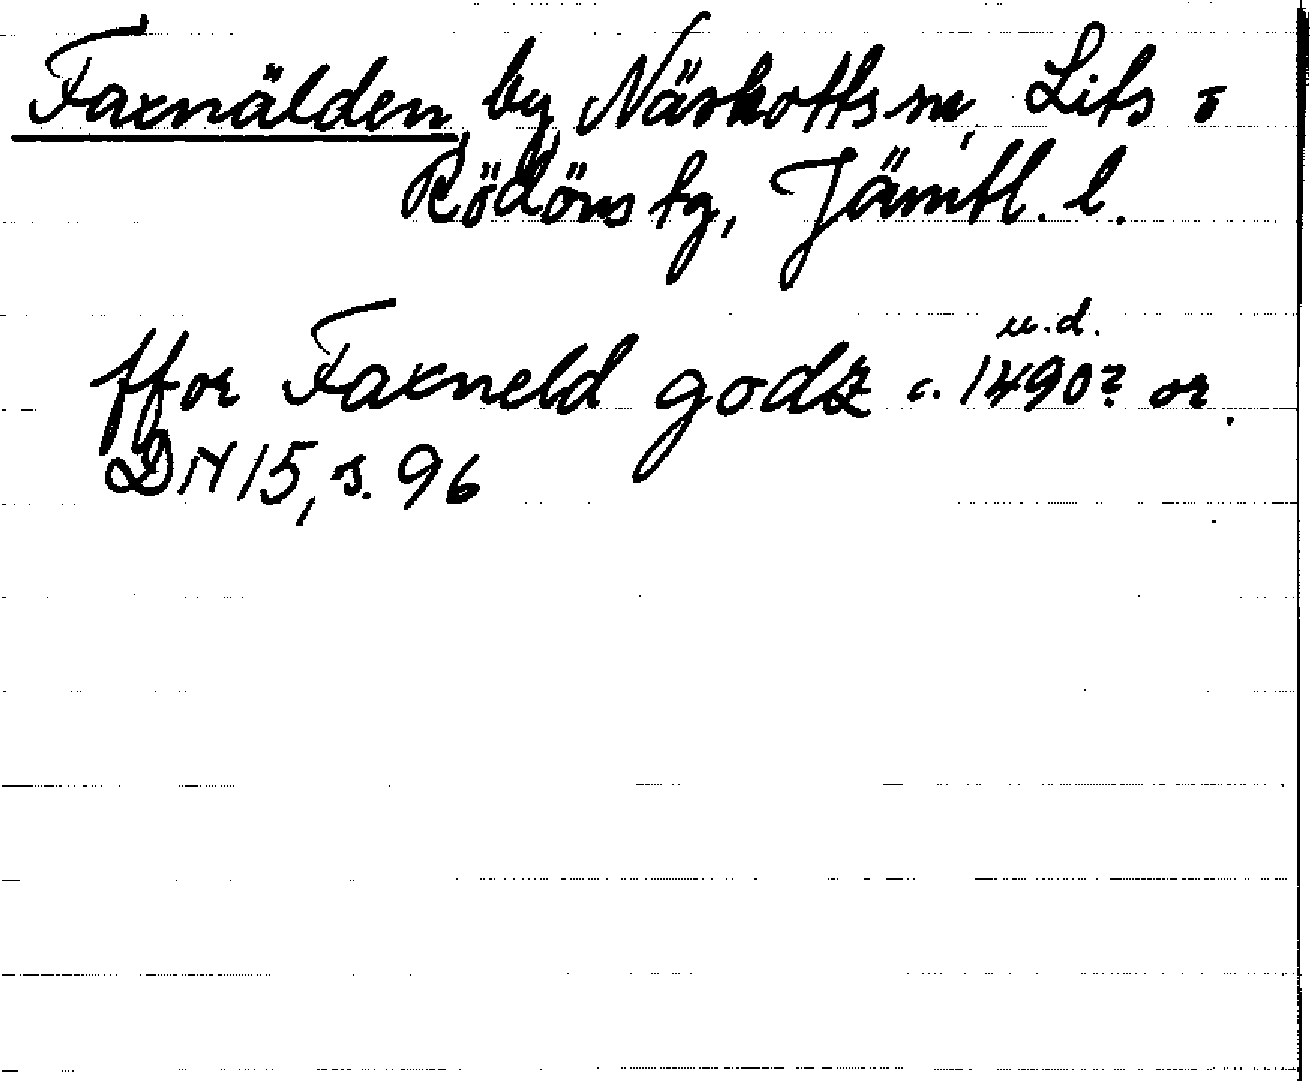 Faxnälden, by, Näskotts sn, Lits o
Rödöns tg, Jämtl. l.
u.d.
ffor Faxneld godz c. 1490? or.
DN 15, s. 96